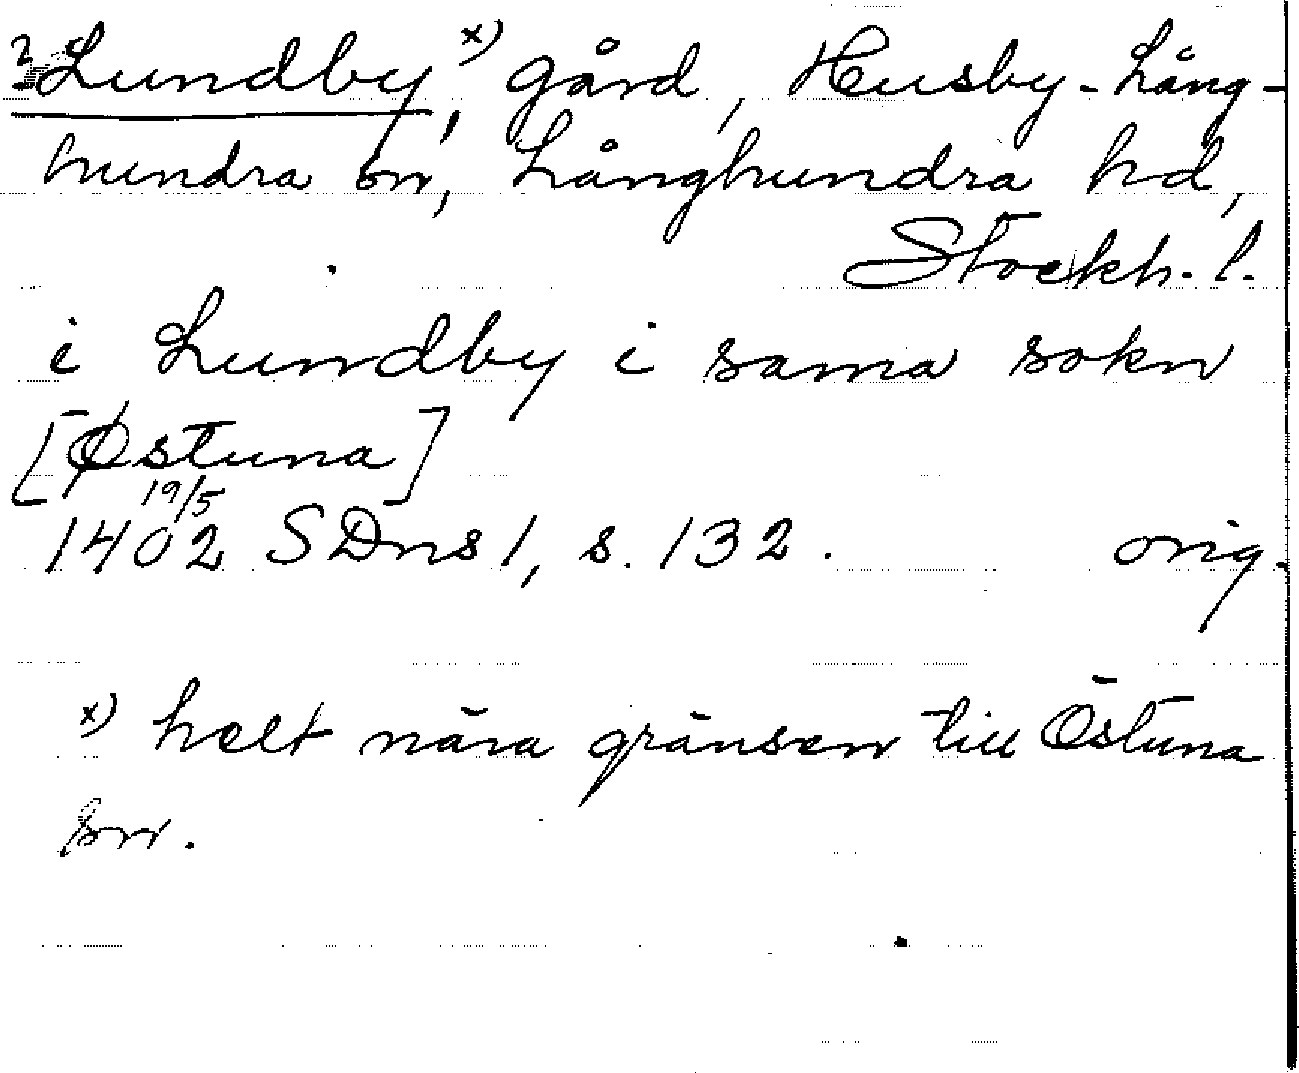 ?Lundby, x) gård, Husby-Lång-
hundra sn, Långhundra hd,
Stockh. l.
i Lundby i sama sokn
[Østuna]
19/5
1402 SDns 1, s. 132. orig.
x) helt nära gränsen till Östuna
sn.